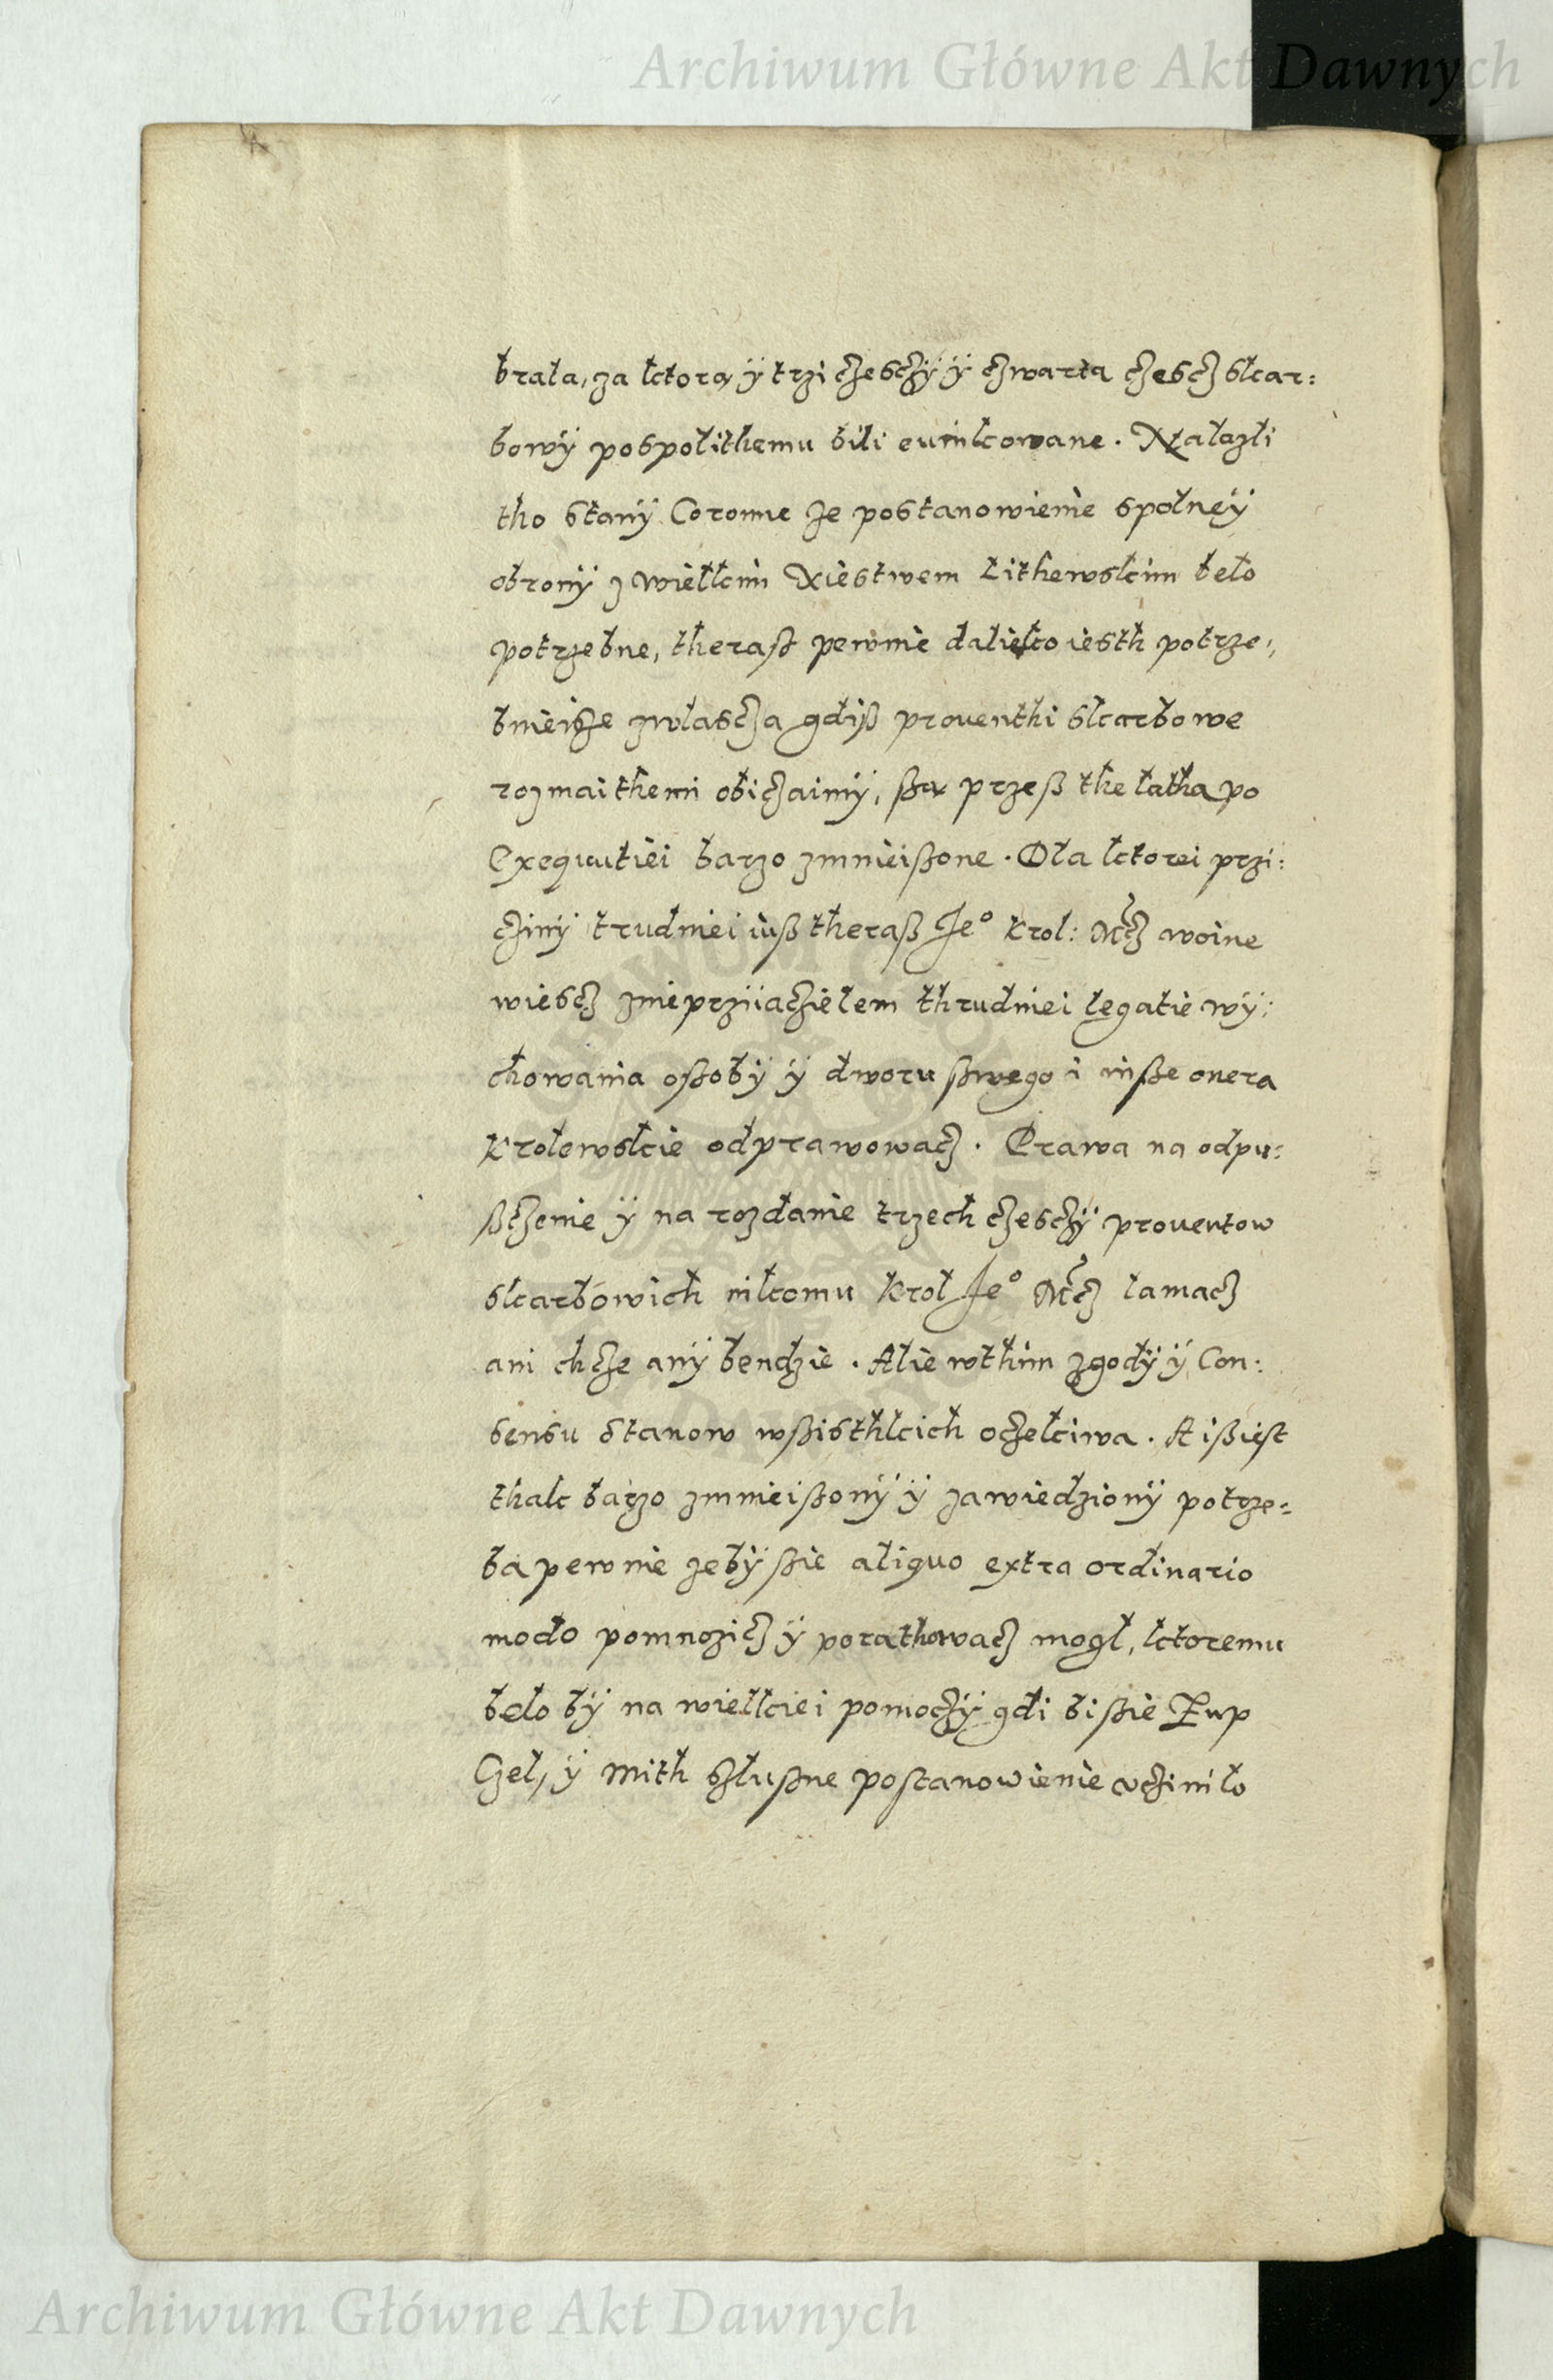 Archiwum Główne Akt Dawnych
brala, za ktorą ÿ trzi częsczÿ ÿ czwarta czescz skar:
bowÿ pospolithemu bili euinkowane. Nalazli
tho stanÿ Coronne ze postanowienie spolneÿ
obronÿ z wielkim Xiestwem Lithewskim belo
potrzebne, therasz pewnie dalieko iesth potrze:
bnieisze zwlascza gdiß prouenthi skarbowe
rozmaithemi obiczaimÿ, ßą przeß the latha po
Exequutiei barzo zmnieißone. Dla ktorei przi:
czinÿ trudniei iuß theraß Je° Krol: Mcz woine
wiescz znieprziiaczielem thrudniei legatie wÿ:
chowania oßobÿ ÿ dworu ßwego i inße onera
Krolewskie odprawowacz. Prawa na odpu:
ßczenie ÿ na rozdanie trzech czesczÿ prouentow
skarbowich nikomu Krol Je° Mcz lamacz
ani chcze anÿ bendzie. Alie wthim zgodÿ ÿ Con:
sensu stanow wßisthkich oczekiwa. A iß iest
thak barzo zmnieißonÿ ÿ zawiedzionÿ potrze:
ba pewnie zebÿ ßie aliquo extra ordinario
modo pomnozicz ÿ porathowacz mogl, ktoremu
belo bÿ na wielkiei pomoczÿ gdi bi ßie Zup
Czel, ÿ Mith szlußne postanowienie vcziniło
Archiwum Główne Akt Dawnych